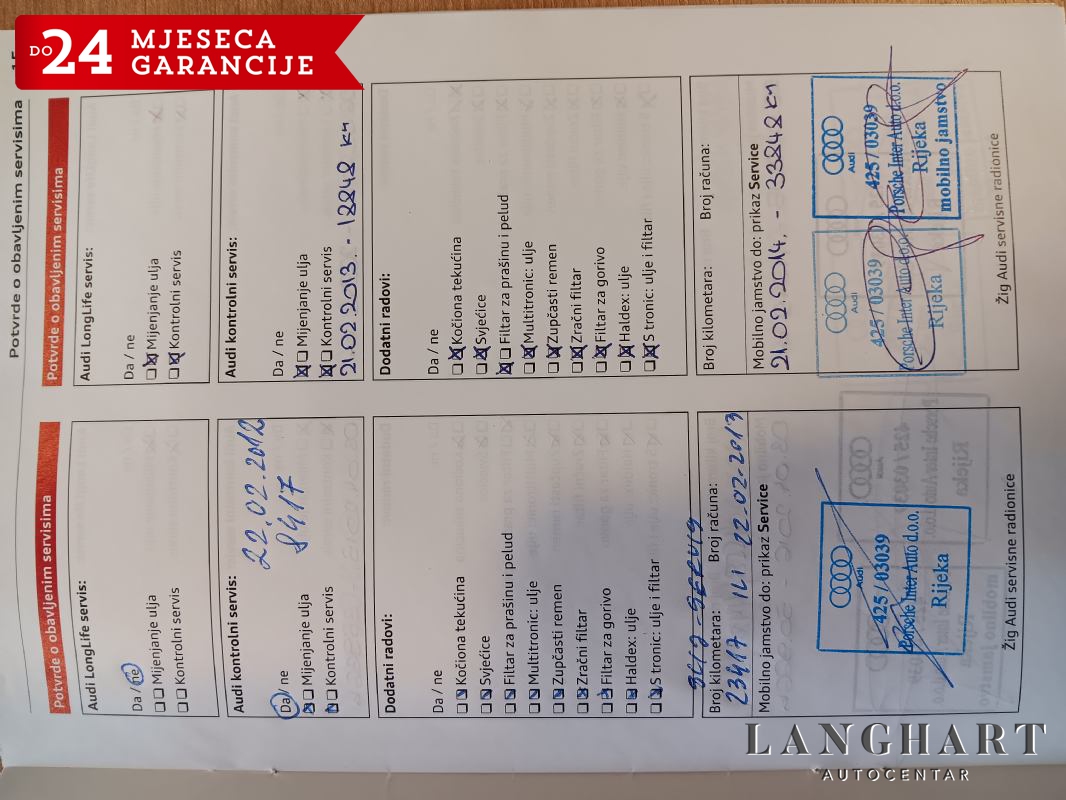 DO 24 MJESECA
GARANCIJE
Potvrde o obavljenim servisima
Potvrde o obavljenim servisima
Audi LongLife servis:
Da / ne
Mijenjanje ulja
Kontrolni servis
Audi kontrolni servis:
22.02.2012
8417
Da / ne
Mijenjanje ulja
Kontrolni servis
Dodatni radovi:
Da / ne
Kočiona tekućina
Svjećice
Filtar za prašinu i pelud
Multitronic: ulje
Zupčasti remen
Zračni filtar
Filtar za gorivo
Haldex: ulje
S tronic: ulje i filtar
Broj kilometara: Broj računa:
23417 ILI 22.02.2013
Mobilno jamstvo do: prikaz Service
Audi
425 / 03039
Porsche Inter Auto d.o.o.
Rijeka
Žig Audi servisne radionice
Potvrde o obavljenim servisima
Audi LongLife servis:
Da / ne
Mijenjanje ulja
Kontrolni servis
Audi kontrolni servis:
Da / ne
Mijenjanje ulja
Kontrolni servis
21.02.2013. - 18848 km
Dodatni radovi:
Da / ne
Kočiona tekućina
Svjećice
Filtar za prašinu i pelud
Multitronic: ulje
Zupčasti remen
Zračni filtar
Filtar za gorivo
Haldex: ulje
S tronic: ulje i filtar
Broj kilometara: Broj računa:
Mobilno jamstvo do: prikaz Service
21.02.2014. - 33848 km
Audi
425 / 03039
Porsche Inter Auto d.o.o.
Rijeka
Audi
425 / 03039
Porsche Inter Auto d.o.o.
Rijeka
mobilno jamstvo
Žig Audi servisne radionice
LANGHART
AUTOCENTAR